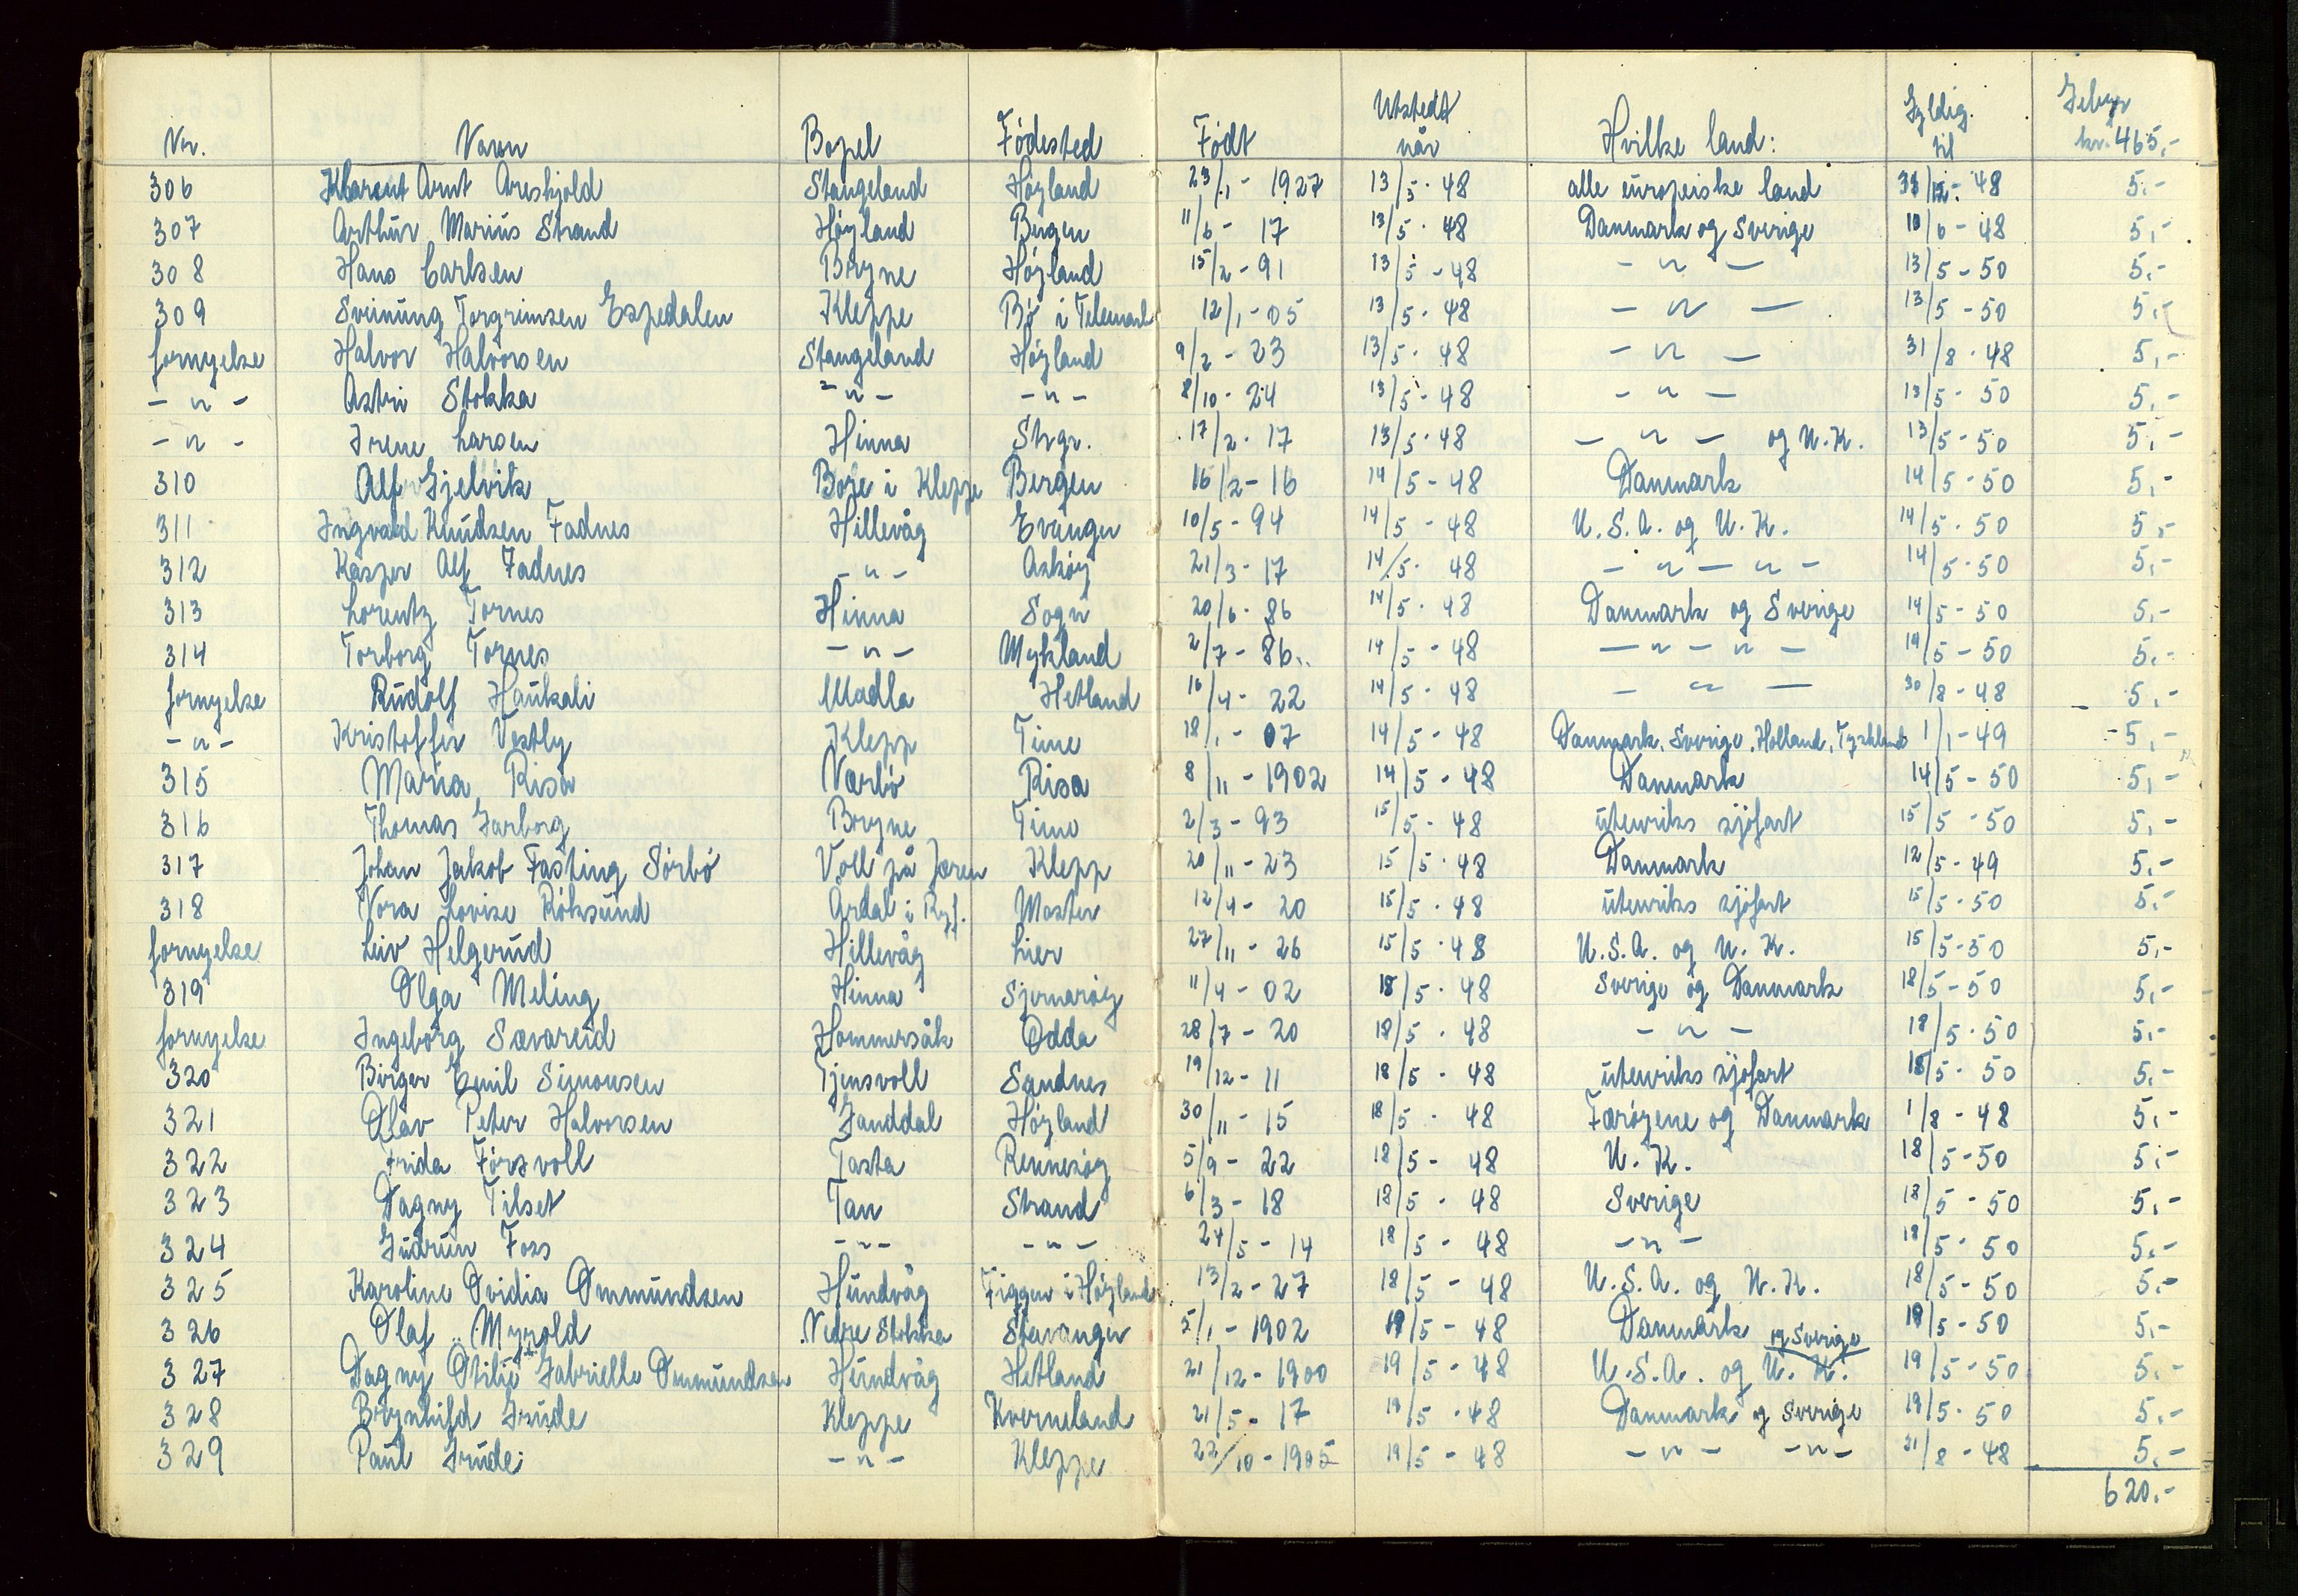 Nr. Navn Bopel Födested Födt Utstedt når Hvilke land: Gyldig til Gebyr kr. 465,-
306 Klarent Arnt Areskjold Stangeland Höyland 23/1 - 1927 13/5 - 48 alle europeiske land 31/12 - 48 5,-
307 Arthur Marius Strand Höyland Bergen 11/6 - 17 13/5 - 48 Danmark og Sverige 10/6 - 48 5,-
308 Hans Carlsen Bryne Höyland 15/2 - 91 13/5 - 48 - " - 13/5 - 50 5,-
309 Sveinung Torgrimsen Espedalen Kleppe Bö i Telemark 12/1 - 05 13/5 - 48 - " - 13/5 - 50 5,-
fornyelse Halvor Halvorsen Stangeland Höyland 9/2 - 23 13/5 - 48 - " - 31/8 - 48 5,-
- " - Astri Stokka - " - - " - 8/10 - 24 13/5 - 48 - " - 13/5 - 50 5,-
- " - Irene Larsen Hinna Stvgr. 17/2 - 17 13/5 - 48 - " - og U.K. 13/5 - 50 5,-
310 Alf Gjelvik Bore i Kleppe Bergen 16/2 - 16 14/5 - 48 Danmark 14/5 - 50 5,-
311 Ingvald Knudsen Fadnes Hillevåg Evanger 10/5 - 94 14/5 - 48 U.S.A. og U.K. 14/5 - 50 5,-
312 Kasper Alf Fadnes - " - Asköy 21/3 - 17 14/5 - 48 - " - " - 14/5 - 50 5,-
313 Lorentz Tornes Hinna Sogn 20/6 - 86 14/5 - 48 Danmark og Sverige 14/5 - 50 5,-
314 Torborg Tornes - " - Mykland 2/7 - 86 14/5 - 48 - " - " - 14/5 - 50 5,-
fornyelse Rudolf Haukali Madla Hetland 16/4 - 22 14/5 - 48 - " - 30/8 - 48 5,-
- " - Kristoffer Vestly Klepp Time 18/1 - 07 14/5 - 48 Danmark, Sverige, Holland, Tyskland 1/1 - 49 5,-
315 Maria Risa Nærbö Risa 8/11 - 1902 14/5 - 48 Danmark 14/5 - 50 5,-
316 Thomas Garborg Bryne Time 2/3 - 93 15/5 - 48 utenriks sjöfart 15/5 - 50 5,-
317 Johan Jakob Fasting Sörbö Voll på Jæren Klepp 20/11 - 23 15/5 - 48 Danmark 12/5 - 49 5,-
318 Nora Lovise Röksund Årdal i Ryf. Moster 12/4 - 20 15/5 - 48 utenriks sjöfart 15/5 - 50 5,-
fornyelse Leiv Helgerud Hillevåg Lier 27/11 - 26 15/5 - 48 U.S.A. og U.K. 15/5 - 50 5,-
319 Olga Meling Hinna Sjernaröy 11/4 - 02 18/5 - 48 Sverige og Danmark 18/5 - 50 5,-
fornyelse Ingeborg Sævareid Hommersåk Odda 28/7 - 20 18/5 - 48 - " - 18/5 - 50 5,-
320 Birger Emil Simonsen Tjensvoll Sandnes 19/12 - 11 18/5 - 48 utenriks sjöfart 18/5 - 50 5,-
321 Olav Peter Halvorsen Ganddal Höyland 30/11 - 15 18/5 - 48 Færöyene og Danmark 1/8 - 48 5,-
322 Frida Försvoll Tasta Rennesöy 5/9 - 22 18/5 - 48 U.K. 18/5 - 50 5,-
323 Dagny Tilset Tau Strand 6/3 - 18 18/5 - 48 Sverige 18/5 - 50 5,-
324 Gudrun Foss - " - - " - 24/5 - 14 18/5 - 48 - " - 18/5 - 50 5,-
325 Karoline Ovidia Ommundsen Hundvåg Figgen i Höyland 13/2 - 27 18/5 - 48 U.S.A. og U.K. 18/5 - 50 5,-
326 Olaf Myrold Nedre Stokka Stavanger 5/1 - 1902 19/5 - 48 Danmark og Sverige 19/5 - 50 5,-
327 Dagny Otilie Gabrielle Ommundsen Hundvåg Hetland 21/12 - 1900 19/5 - 48 U.S.A. og U.K. 19/5 - 50 5,-
328 Brynhild Grude Kleppe Kverneland 21/5 - 17 19/5 - 48 Danmark og Sverige 19/5 - 50 5,-
329 Paul Grude - " - Kleppe 22/10 - 1905 19/5 - 48 - " - - " - 21/8 - 48 5,-
620,-